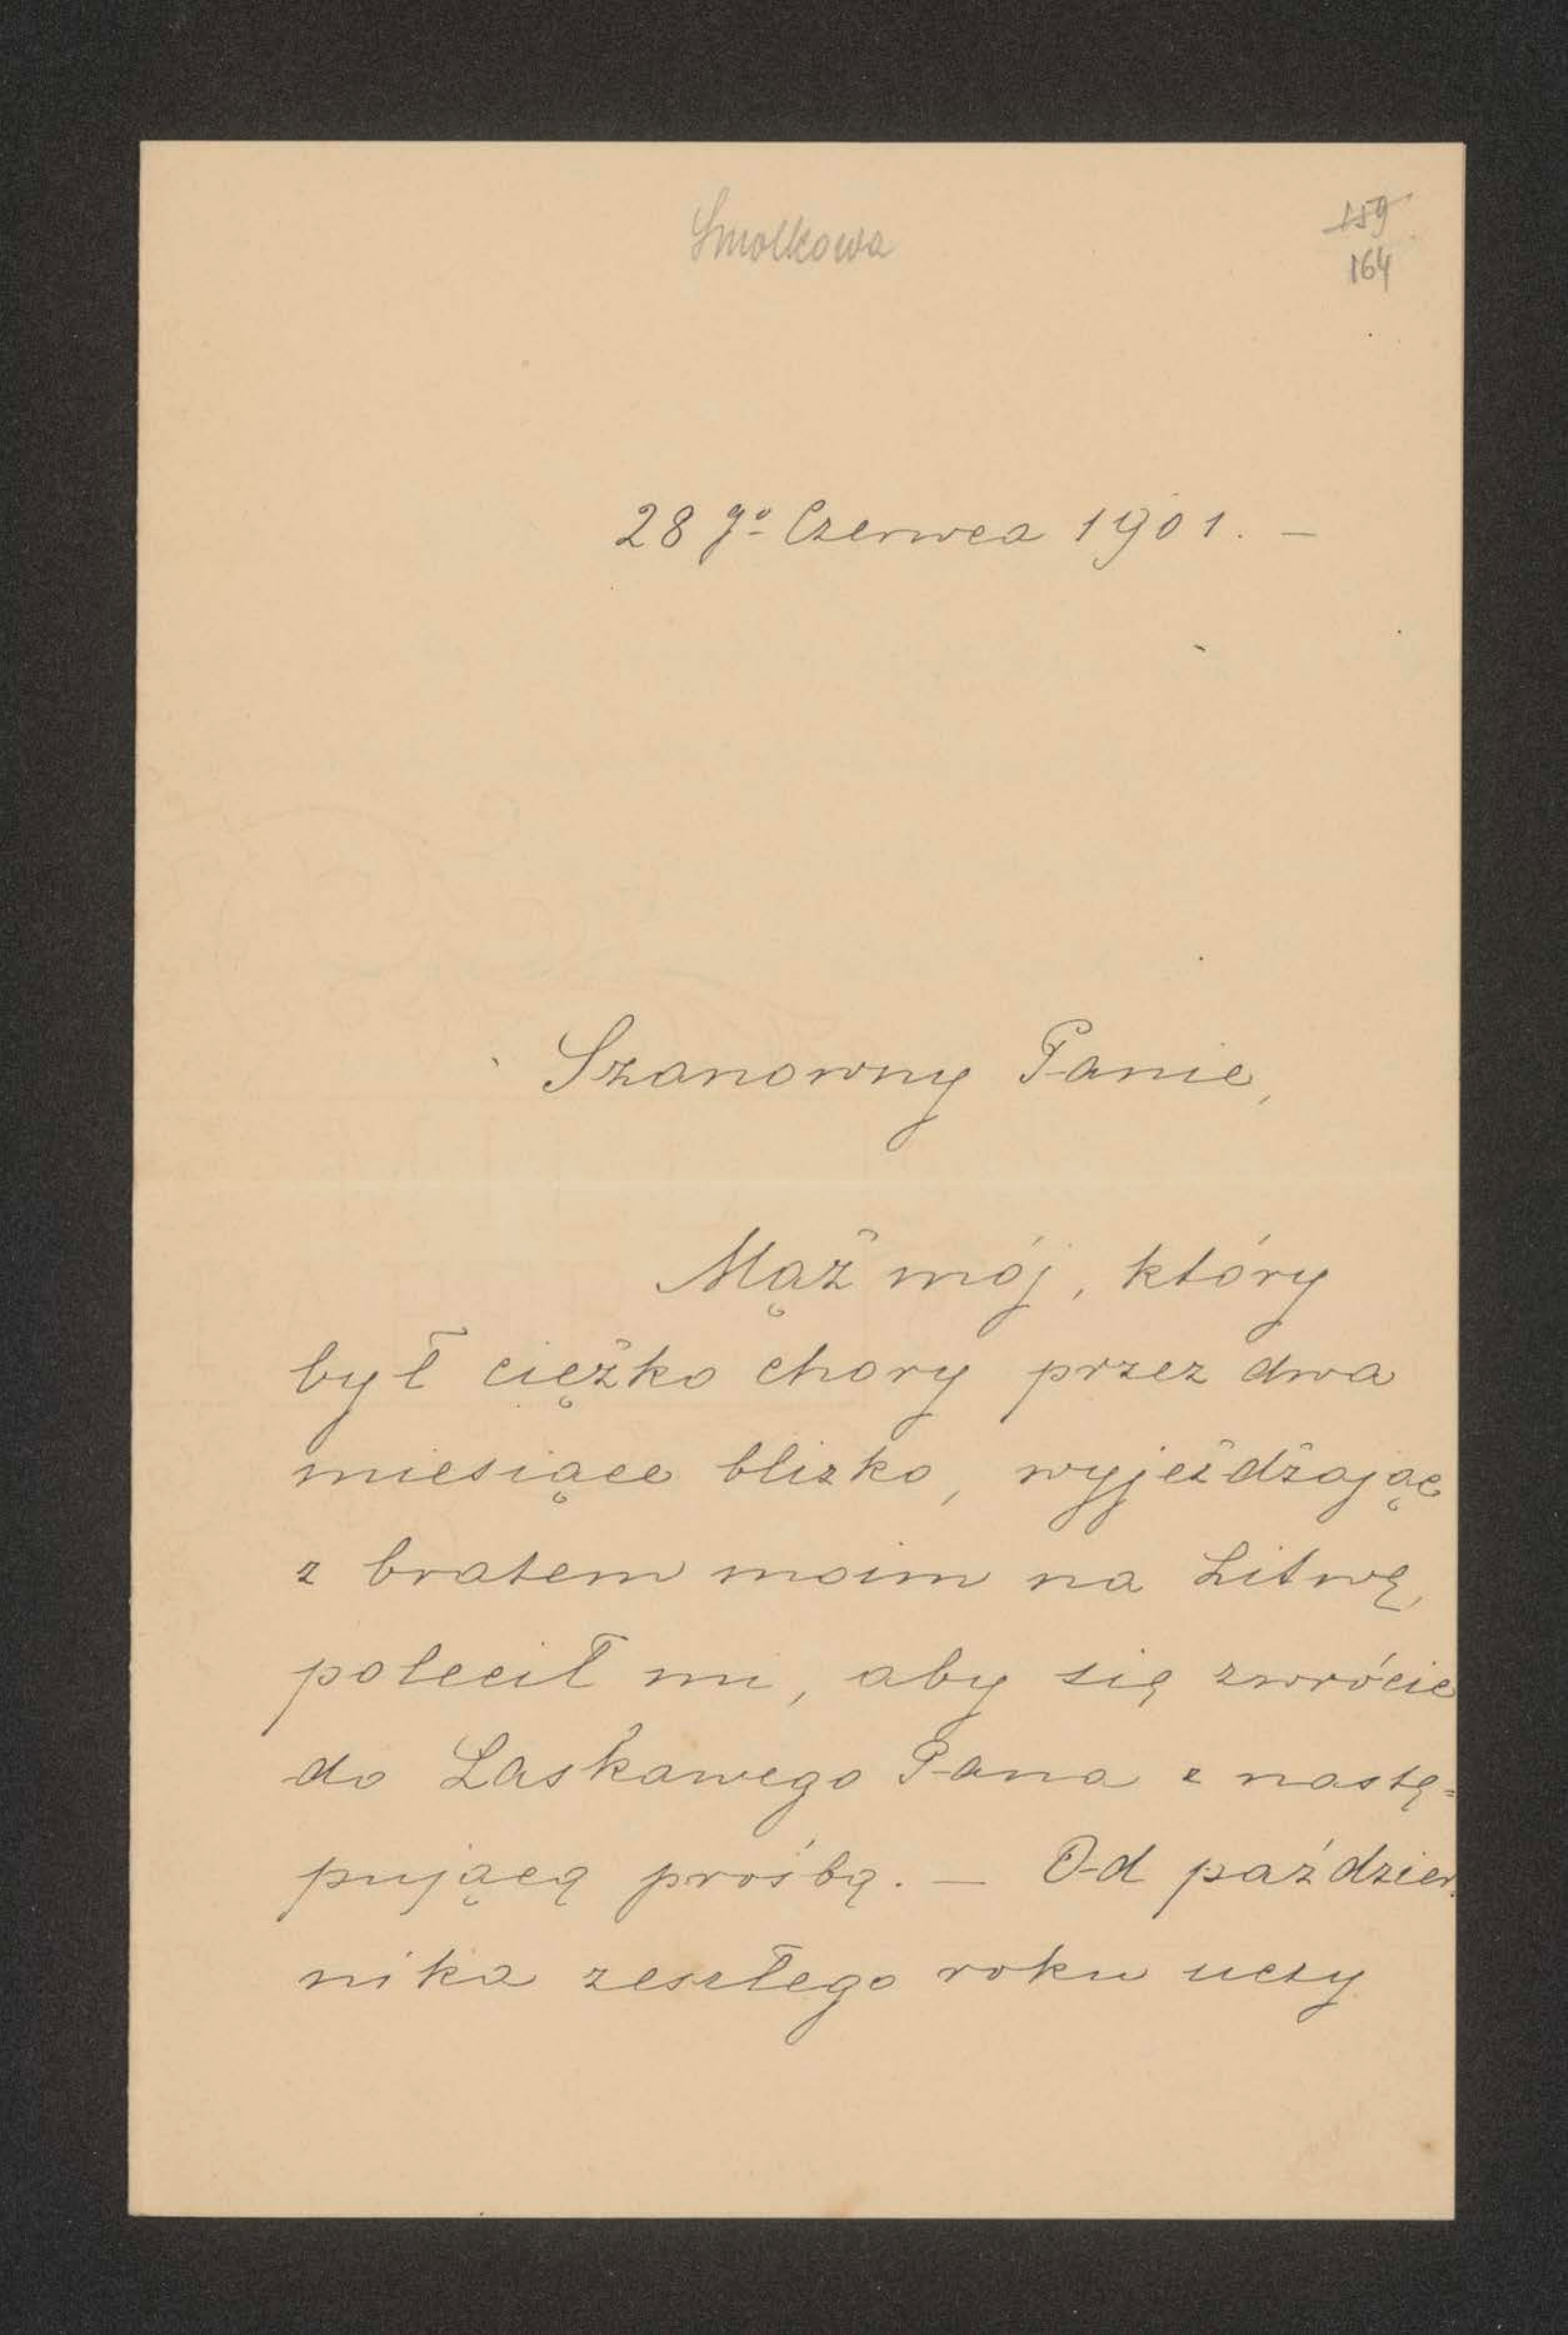 Smolkowa
159
164
28 go Czerwca 1901. —
Szanowny Panie,
Mąż mój, który
był ciężko chory przez dwa
miesiące blizko, wyjeżdżając
z bratem moim na Litwę,
polecił mi, aby się zwrócić
do Łaskawego Pana z nastę=
pującą prośbą. — Od paździer.
nika zeszłego roku uczy